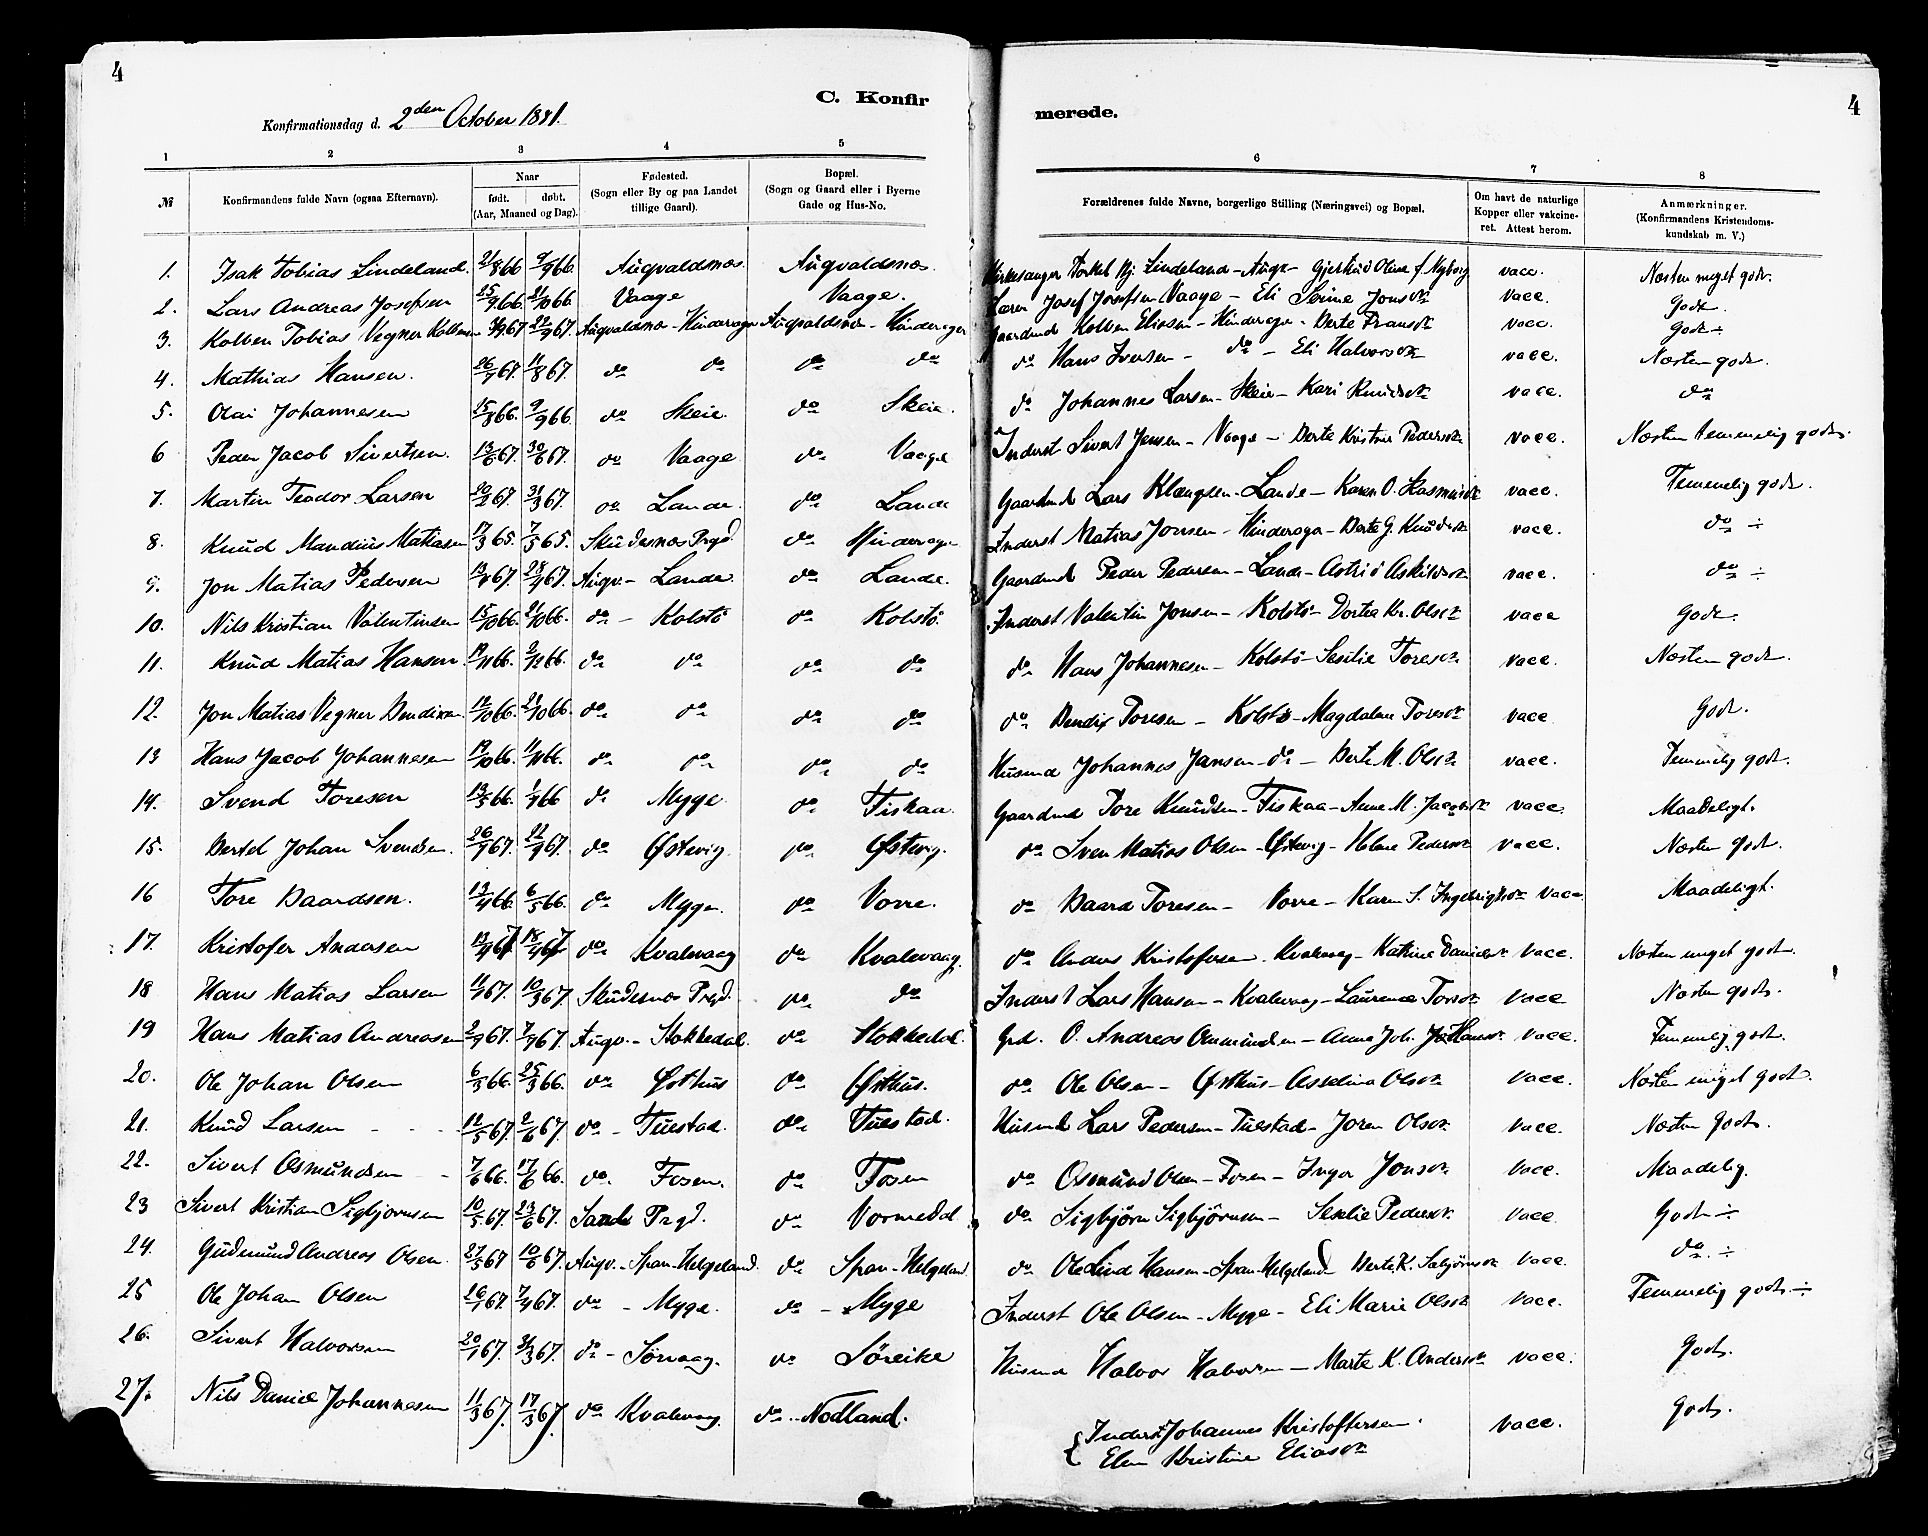 4
C. Konfir
merede.
4
Konfirmationsdag d. 2den October 1881.
1 2 3 4 5 6 7 8
№ Konfirmandens fulde Navn (ogsaa Efternavn). Naar født. døbt. (Aar, Maaned og Dag). Fødested. (Sogn eller By og paa Landet tillige Gaard). Bopæl. (Sogn og Gaard eller i Byerne Gade og Hus-No. Forældrenes fulde Navne, borgerlige Stilling (Næringsvei) og Bopæl. Om havt de naturlige Kopper eller vakcineret. Attest herom. Anmærkninger. (Konfirmandens Kristendomskundskab m. V.)
1. Isak Tobias Lindeland. 21/8 66 9/9 66. Augvaldsnæs. Augvaldsnæs. Kirkesanger Torkel Bj. Lindeland - Augv - Gjertrud Oline f. Nyborg vacc. Næsten meget godt.
2. Lars Andreas Josefsen 25/9 66. 21/10 66 Vaage Vaage. Lærer Josef Josefsen Vaage - Eli Serine Jonsdt vacc. Godt.
3. Kolben Tobias Vegner Kolbensen 67 22/9 67. Augvaldsnæs - Hinderager Augvaldsnæs - Hinderager Gaardmd Kolben Eliasen - Hinderager - Berte Fransdt vacc. Godt ÷
4. Mathias Hansen. 26/7 67. 11/8 67. do do do do do Hans Iversen - do - Eli Halvorsdt vacc. Næsten godt.
5. Olai Johannesen 15/8 66. 9/9 66. do Skeie. do Skeie. do Johannes Larsen - Skeie - Kari Knudsdt vacc. do
6 Peder Jacob Sivertsen. 13/6 67. 30/6 67. do Vaage do Vaage Inderst Sivert Jensen - Vaage - Berte Kristine Pedersdt vacc. Næsten temmelig godt.
7. Martin Teodor Larsen 20/2 67. 31/3 67. do Lande. do Lande Gaardmd Lars Klængsen - Lande - Karen O. Rasmusdt vacc. Temmelig godt.
8. Knud Mandius Matiasen 17/3 65. 7/5 65. Skudesnæs Prgd. do Hinderager Inderst Matias Jonsen - Hinderager - Berte G. Knudsdt vacc. do ÷
9. Jon Matias Pedersen 67. 28/4 67. Augv. - Lande. do Lande. Gaardmd Peder Pedersen - Lande - Astrid Askildsdt vacc. do ÷
10. Nils Kristian Valentinsen 15/10 66. 21/10 66. do - Kolstø do Kolstø Inderst Valentin Jonsen - Kolstø - Dortea Kr. Olsdt vacc Godt.
11. Knud Matias Hansen. 19/11 66. 2/12 66. do do do do do Hans Johannesen - Kolstø - Sesilie Toresdt vacc. Næsten godt.
12. Jon Matias Vegner Bendixen. 12/10 66. 28/10 66. do do do do do Bendix Toresen - Kolstø - Magdalene Toresdt vacc Godt.
13 Hans Jacob Johannesen 19/10 66. 11/11 66. do do do do Husmd Johannes Jansen - do - Berte M. Olsdt vacc. Temmelig godt.
14. Svend Toresen 13/5 66. 66 do Myge. do Fiskaa. Gaardmd Tore Knudsen - Fiskaa - Anne M. Jacobsdt vacc. Maadeligt.
15. Bertel Johan Svendsen. 67. 67. do Østevig. do Østevig. do Sven Matias Olsen - Østevig - Helene Pedersdt vacc. Næsten godt.
16 Tore Baardsen. 13/4 66. 6/5 66. do Myge. do Vorre. do Baard Toresen - Vorre - Karen S. Ingebrigtsdt vacc Maadeligt.
17. Kristofer Andersen 67 18/4 67 do Kvalevaag do Kvalevaag. do Anders Kristofersen. Kvalevaag - Katrine Danielsdt vacc. Næsten meget godt.
18 Hans Matias Larsen 11/1 67. 10/3 67. Skudesnæs Prgd. do do Inderst Lars Hansen - Kvalevaag - Laurence Toresdt vacc Næsten godt.
19 Hans Matias Andreasen 67. 67. Augv. - Stokkedal. do Stokkedal. Grd. O. Andreas Ommundsen - Anna Joh. Johansdt. vacc. Temmelig godt.
20. Ole Johan Olsen 6/3 66. 25/3 66. do Østhus do Østhus. do Ole Olsen - Østhus - Asseline Olsdt vacc. Næsten meget godt.
21. Knud Larsen - - 12/5 67. 2/6 67. do - Tuestad. do Tuestad. Husmd Lars Pedersen - Tuestad - Joren Olsdt. vacc. Næsten Godt.
22. Sivert Osmundsen - 7/6 66. 17/6 66. do. Fosen. do Fosen do Osmund Olsen - Fosen - Inger Jonsdt vacc. Maadelig.
23 Sivert Kristian Sigbjørnsen 10/5 67. 23/6 67. Sands Prgd. do Vormedal do Sigbjørn Sigbjørnsen - Seselie Pedersdt. vacc. Godt ÷
24. Gudmund Andreas Olsen 27/5 67 10/6 67. Augv. - Span-Helgeland. do Span-Helgeland. do Ole Lind Hansen - Span-Helgeland Berte K. Sebjørnsdt vacc. do ÷
25 Ole Johan Olsen 26/1 67. 7/4 67. do - Myge. do - Myge Inderst Ole Olsen - Myge - Eli Marie Olsdt vacc. Temmelig godt ÷
26. Sivert Halvorsen 20/1 67. 3/3 67. do - Sørvaag. do Søreike Husmd Halvor Halvorsen - Marte K. Andersdt vacc. Godt.
27. Nils Daniel Johannesen 11/3 67. 17/3 67. do Kvalevaag. do - Nodland. Inderst Johannes Kristoffersen. vacc. Godt.
Elen Kristine Eliasdt